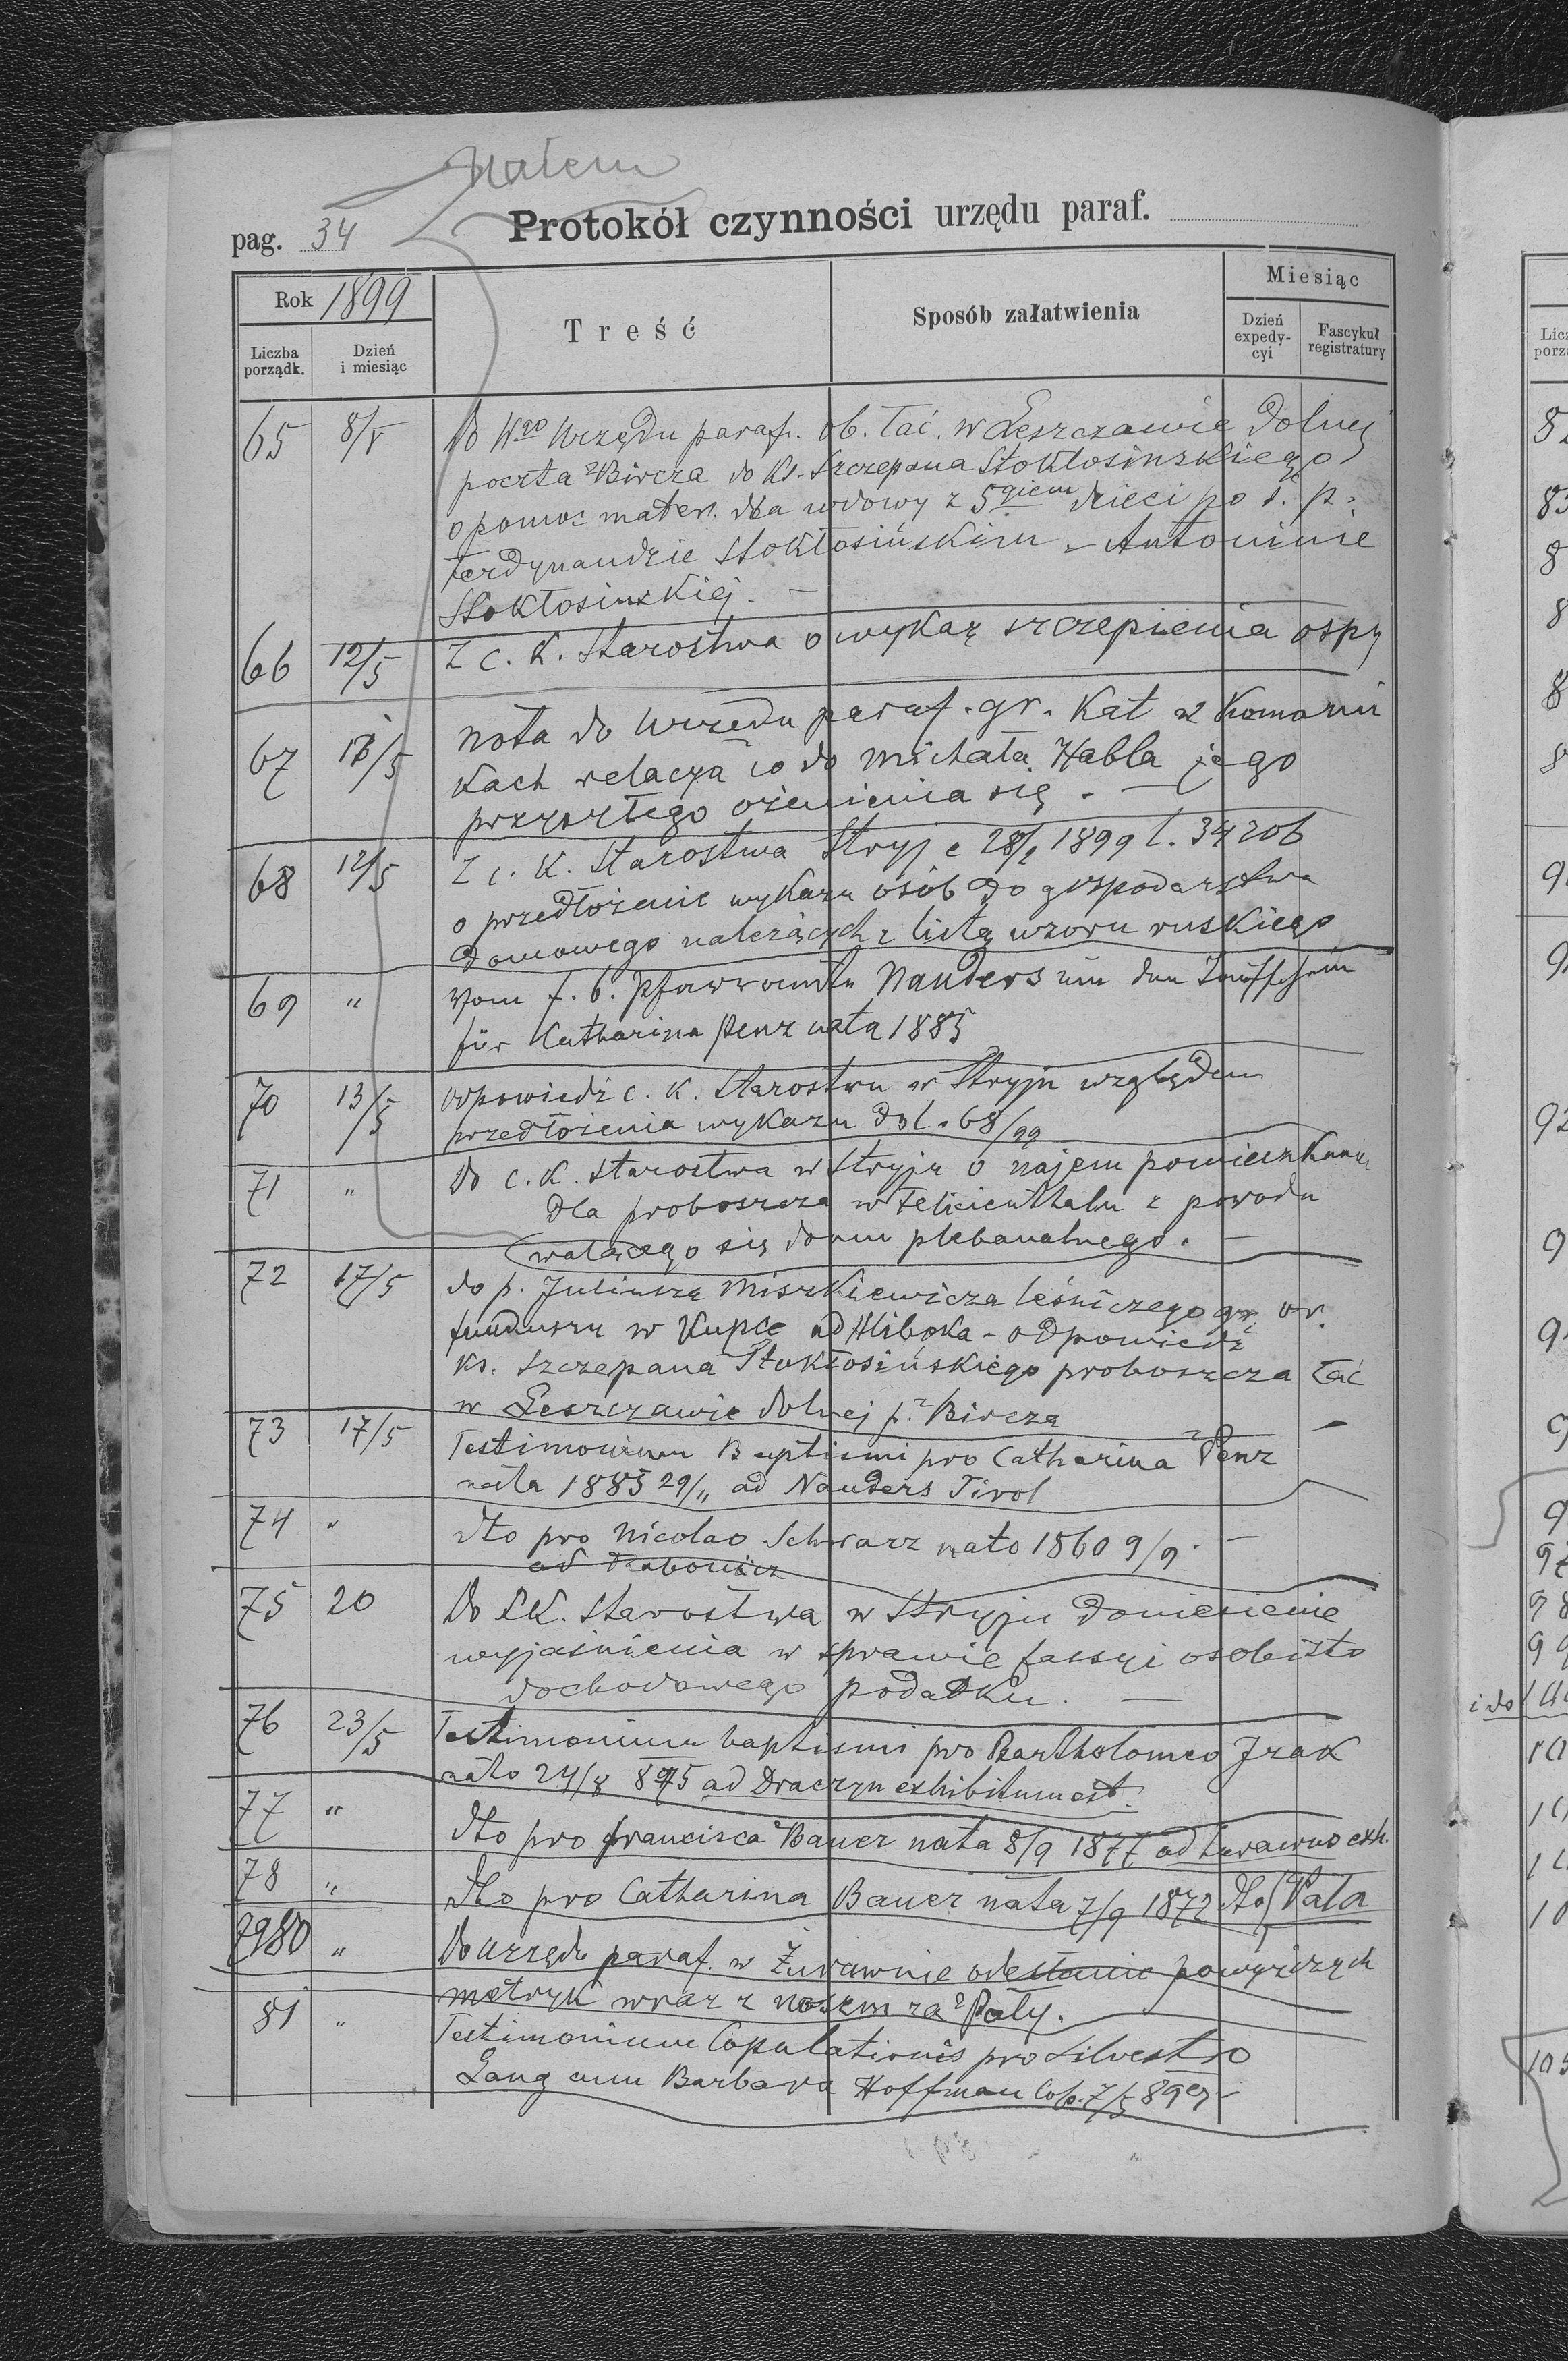 pag. 34
Protokół czynności urzędu paraf.
Rok 1899
Treść
Sposób załatwienia
Miesiąc
Liczba porządk.
Dzień i miesiąc
Dzień expedy-cyi
Fascykuł registratury
65 8/V Do Wgo Urzędu paraf. ob. łać. w Leszczawie Dolnej
poczta Bircza do Ks. Szczepana Stokłosinskiego
o pomoc mater. dla wdowy z 5giem dzieci po ś. p.
Ferdynandzie Stokłosińskim - Antoninie
Stokłosinskiej. —
66 12/5 Z c. K. Starostwa o wykaz szczepienia ospy
67 /5 Nota do Urzędu paraf. gr. Kat w Komarni
kach relacya co do Michała Habla jego
przyszłego ożenienia się. —
68 12/5 Z c. K. Starostwa Stryj 1899 l. 34206
o przedłożenie wykazu osób do gospodarstwa
domowego należących z listą wzoru ruskiego
69 " Vom f. b. Pfarramte Nauders um den Taufschein
für Catharina Penz nata 1885
70 13/5 Odpowiedź c. K. Starostwu w Stryju względem
przedłożenia wykazu do l. 68/99
71 " Do c. K. Starostwa w Stryju o najem pomieszkania
dla proboszcza w Felicienthalu z powodu
walącego się domu plebanalnego. —
72 17/5 do p. Juliusza Miszkiewicza leśniczego gr. or.
funduszu w Kupce ad Hliboka - odpowiedź
Ks. Szczepana Stokłosińskiego proboszcza łać
w Leszczawie Dolnej p. Bircza
73 17/5 Testimonium Baptismi pro Catharina Penz
nata 1885 29/11 ad Nauders Tirol
74 " dto pro Nicolao Schwarz nato 1860 9/9 —
ad
75 20 Do c.K. Starostwa w Stryju doniesienie
wyjaśnienia w sprawie fassyi osobisto
dochodowego podatku. —
76 23/5 Testimonium baptismi pro Bartholomeo Jrak
nato 24/8 875 ad Draczyn exhibitum est.
77 " dto pro Francisca Bauer nata 8/9 1877 ad Żurawno exh.
78 " dto pro Catharina Bauer nata 7/9 1872 dto Pala
7980 " Do Urzędu paraf. w Żurawnie odesłanie powyższych
metryk wraz z
81 " Testimonium Copulationis pro Silvestro
Lang cum Barbara Hoffman Cop. 7/5 899 —